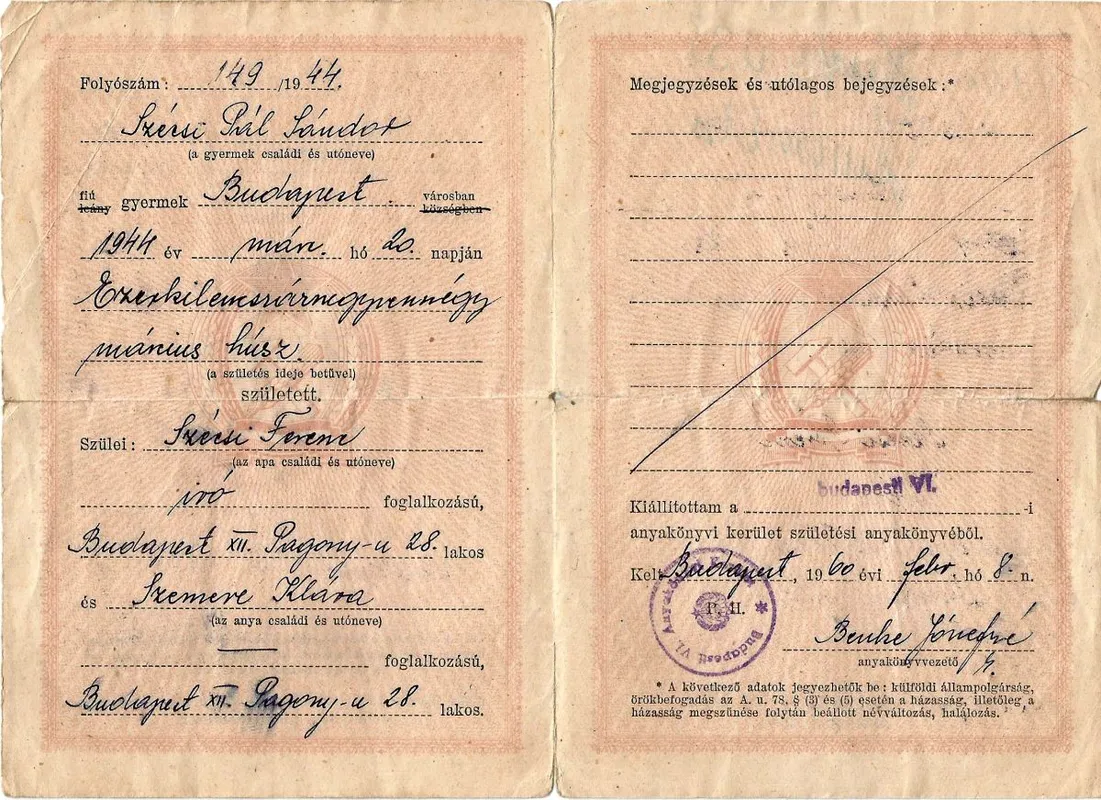 Folyószám: 149 /1944.
Szécsi Pál Sándor
(a gyermek családi és utóneve)
fiú
leány gyermek Budapest városban
községben
1944 év márc. hó 20. napján
Ezerkilencszáznegyvennégy
március húsz.
(a születés ideje betűvel)
született.
Szülei: Szécsi Ferenc
(az apa családi és utóneve)
író foglalkozású,
Budapest XII. Pagony-u 28. lakos
és Szemere Klára
(az anya családi és utóneve)
— foglalkozású,
Budapest XII. Pagony-u 28. lakos.
Megjegyzések és utólagos bejegyzések:*
budapesti VI.
Kiállítottam a -i
anyakönyvi kerület születési anyakönyvéből.
Kelt Budapest, 1960 évi febr. hó 8. n.
P. H.
Budapesti VI. 
Benke Józsefné
anyakönyvvezető h.
* A következő adatok jegyezhetők be: külföldi állampolgárság,
örökbefogadás az A. u. 78. § (3) és (5) esetén a házasság, illetőleg a
házasság megszűnése folytán beállott névváltozás, halálozás.